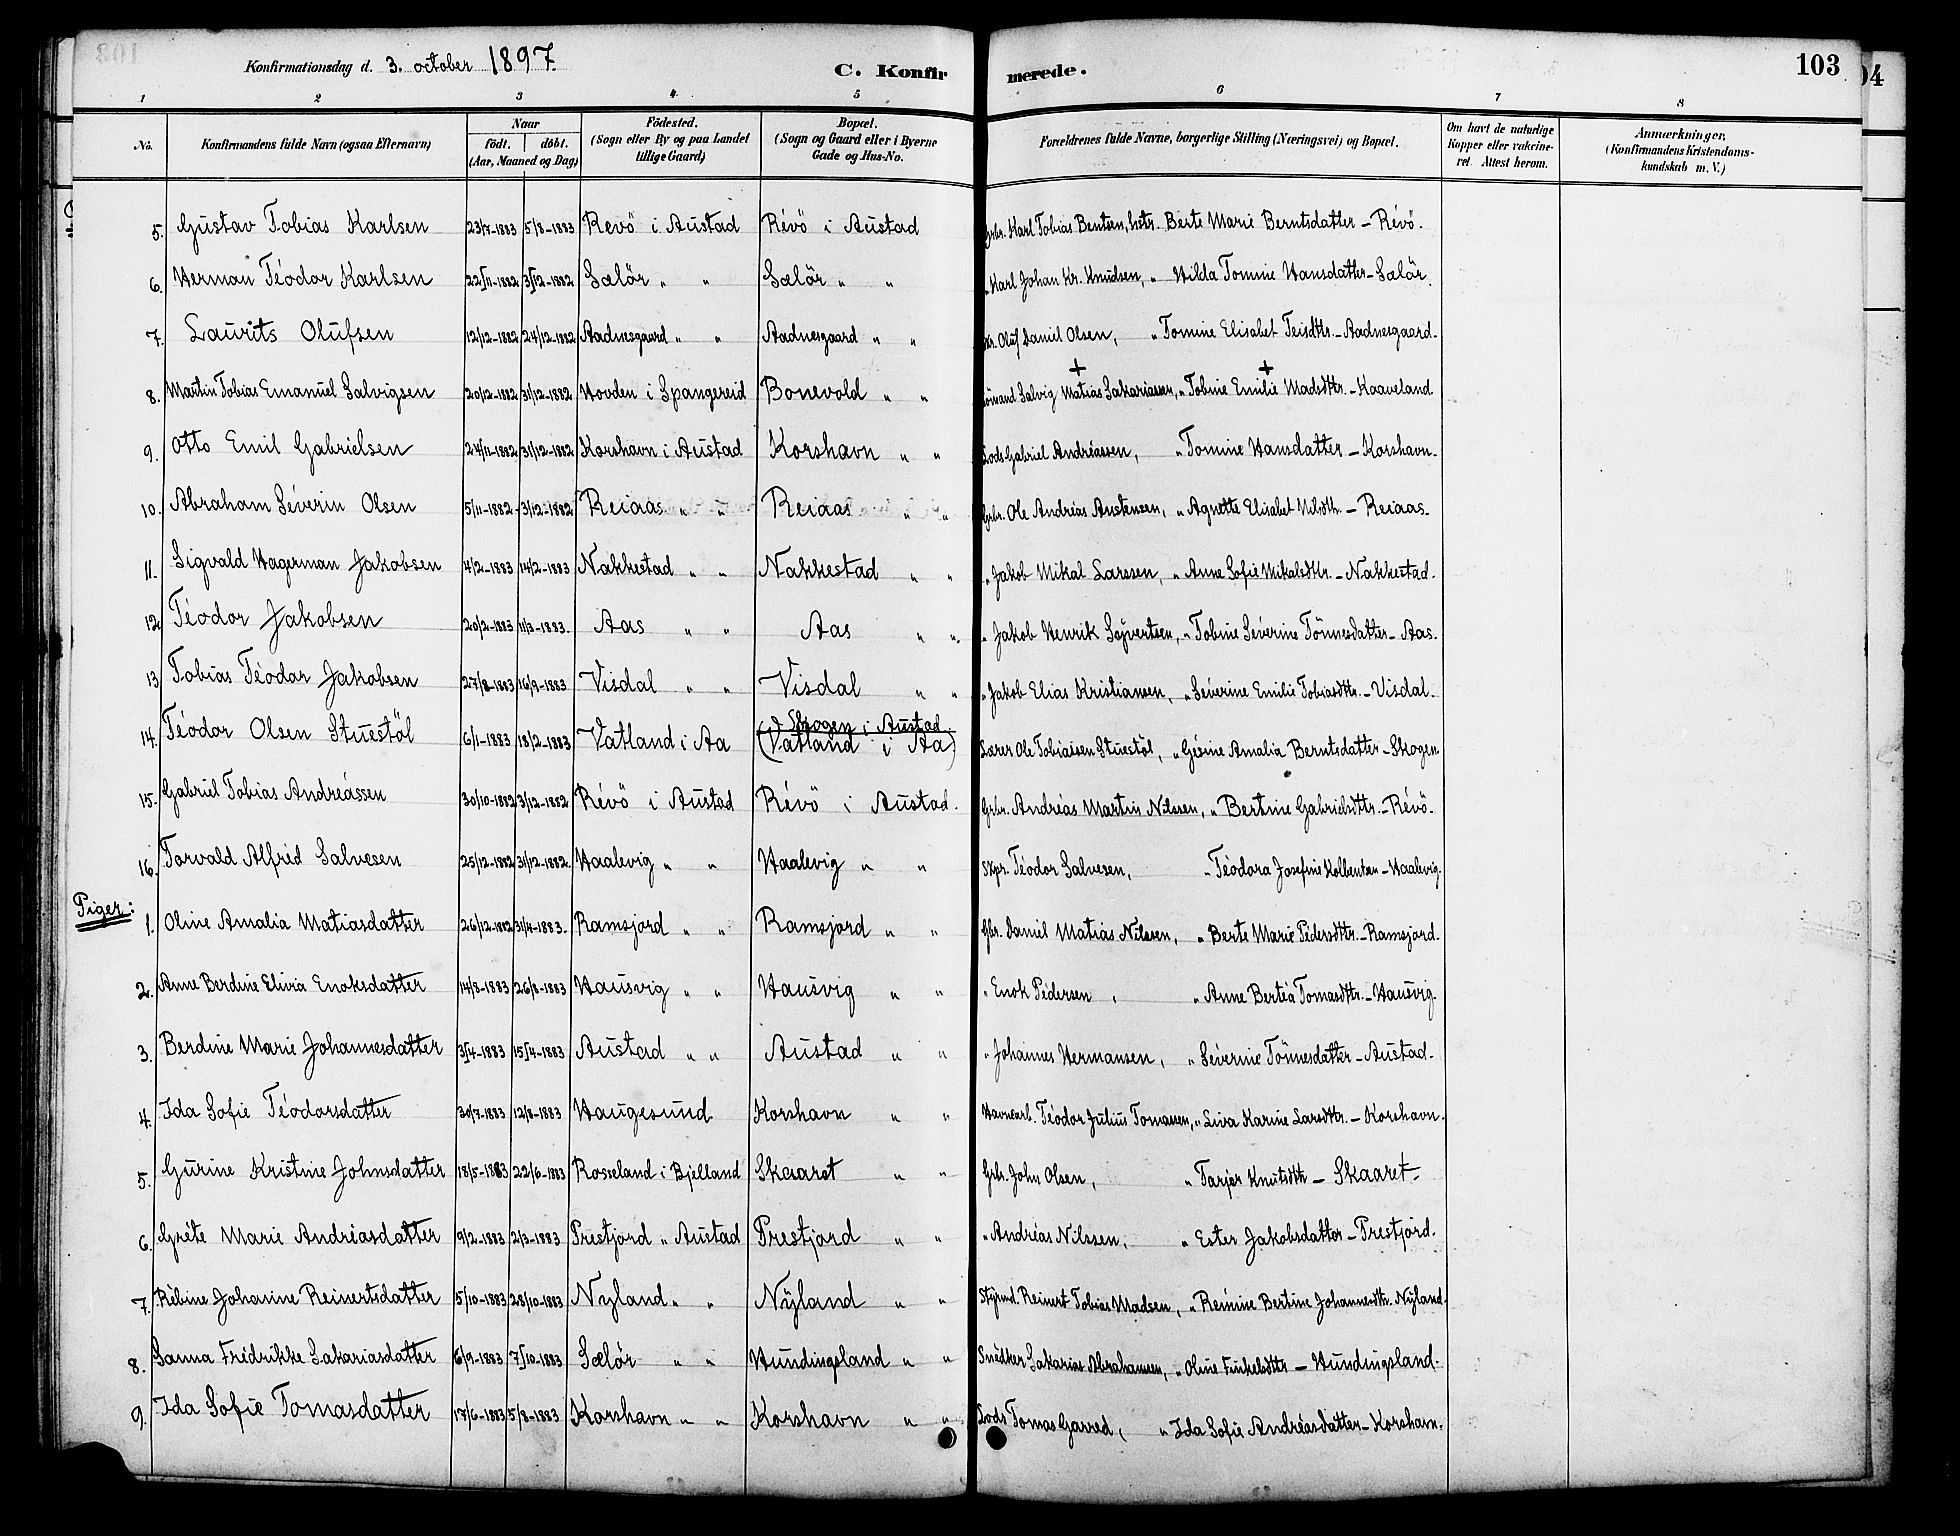 Konfirmationsdag d. 3. october 1897. C. Konfirmerede. 103
04
1 2 3 4 5 6 7 8
No. Konfirmandens fulde Navn (ogsaa Efternavn) Naar födt. döbt. (Aar, Maaned og Dag) Födested. (Sogn eller By og paa Landet tillige Gaard) Bopæl. (Sogn og Gaard eller i Byerne Gade og Hus-No. Forældrenes fulde Navne, borgerlige Stilling (Næringsvei) og Bopæl. Om havt de naturlige Kopper eller vakcineret. Attest herom. Anmærkninger, (Konfirmandens Kristendomskundskab m. V.)
5. Gustav Tobias Karlsen 23/7-1883 5/8-1883 Revö i Austad Révö i Austad Grbr. Karl Tobias Bentsen, hstr. Berte Marie Berntsdatter – Révö.
6. Herman Téodor Karlsen 22/11-1882 3/12-1882 Sælör " " Sælör " " " Karl Johan Kr. Knudsen, " Hilda Tomine Hansdatter – Sælör.
7. Laurits Olufsen 12/12-1882 24/12-1882 Aadnesgaard " " Aadnesgaard " " Oluf Daniel Olsen, " Tomine Elisabet Teisdtr. – Aadnesgaard.
8. Martin Tobias Emanuel Salvigsen 20/12-1882 31/12-1882 Hovden i Spangereid Bonevold " " Sömand Salvig + Matias Sakariassen, " Tobine + Emilie Madsdtr. – Kaaveland.
9. Otto Emil Gabrielsen 24/11-1882 31/12-1882 Korshavn i Austad Korshavn " " Lods Gabriel Andréassen, " Tomine Hansdatter – Korshavn.
10. Abraham Séverin Olsen 5/11-1882 3/12-1882 Reiaas " " Reiaas " " Grbr. Ole Andréas Austensen, " Agnette Elisabet Nilsdtr. – Reiaas.
11. Sigvald Hagerman Jakobsen 4/2-1883 14/2-1883 Nakkestad " " Nakkestad " " " Jakob Mikal Larssen, " Anne Sofie Mikalsdtr. – Nakkestad.
12. Téodor Jakobsen 20/2-1883 11/3-1883. Aas " " Aas " " " Jakob Henrik Sÿvertsen, " Tobine Séverine Tönnesdatter – Aas.
13 Tobias Téodor Jakobsen 27/8-1883 16/9-1883 Visdal " " Visdal " " " Jakob Elias Kristiansen, " Séverine Emilie Tobiasdtr. – Visdal.
14. Téodor Olsen Stuestöl 6/1-1883 18/2-1883 Vatland i Aa Skogen i Austad (Vatland i Aa) Lærer Ole Tobiassen Stuestöl, " Gésine Amalia Berntsdatter – Skogen.
15. Gabriel Tobias Andréassen 30/10-1882 3/12-1882 Révö i Austad Révö i Austad. Grbr. Andréas Martin Nilssen, " Bertine Gabrielsdtr. – Révö.
16. Torvald Alfréd Salvesen 25/12-1882 31/12-1882. Haalevig " " Haalevig " " Skpr. Téodor Salvesen, " Téodora Josefine Kolbentsen – Haalevig.
Piger:
1. Oline Amalia Matiasdatter 26/12-1882 31/4-1883. Ramsjord " " Ramsjord " " Gbr. Daniel Matias Nilssen, " Berte Marie Pedersdtr. – Ramsjord.
2. Anne Berdine Elivia Enoksdatter 14/8-1883 26/8-1883 Hausvig " " Hausvig " " " Enok Pedersen, " Anne Bertéa Tomasdtr. – Hausvig.
3. Berdine Marie Johannesdatter 3/4-1883 15/4-1883 Austad " " Austad " " " Johannes Hermansen, " Séverine Tönnesdatter – Austad.
4. Ida Sofie Téodorsdatter 30/7-1883 12/8-1883 Haugesund Korshavn " " Havnearb. Téodor Julius Tomassen, " Liva Karine Larsdtr. – Korshavn.
5. Gurine Kristine Johnsdatter 18/5-1883 22/6-1883 Rosseland i Bjelland Skaaret " " Grbr. John Olsen, " Tarjer Knutsdtr – Skaaret –
6. Gréte Marie Andréasdatter 9/2-1883 2/3-1883 Prestjord " Austad Prestjord " " " Andréas Nilssen, " Ester Jakobsdatter – Prestjord.
7. Rébine Johanine Reinertsdatter 5/10-1883 28/10-1883 Nyland " " Nÿland " " Stÿrmd. Reinert Tobias Madsen, " Remine Bertine Johannesdtr. Nÿland.
8. Sanna Frédrikke Sakariasdatter 6/9-1883 7/10-1883 Sælör " " Hundingsland " " Snédker Sakarias Abrahamsen, " Oline Finkelsdtr – Hundingsland.
9. Ida Sofie Tomasdatter 17/6-1883 5/8-1883 Korshavn " " Korshavn " " Lods Tomas Garred, " Ida Sofie Andréasdatter – Korshavn.